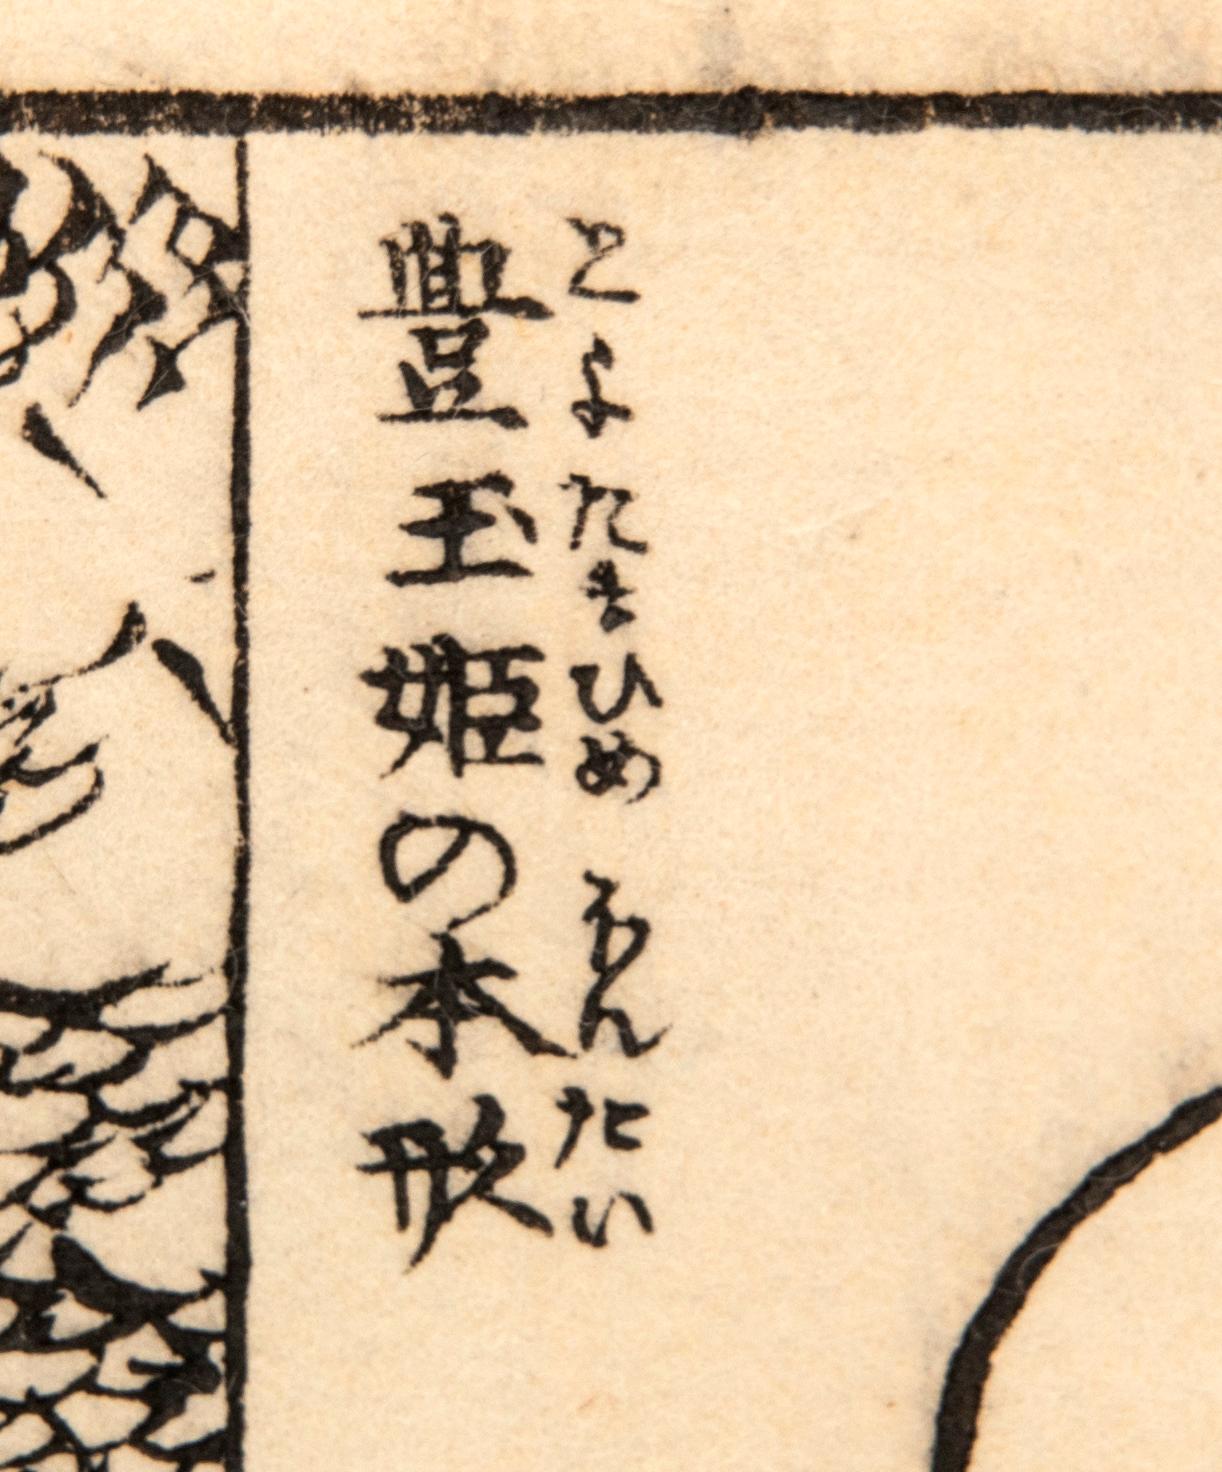 豊玉姫の本形
とよたまひめ ほんたい